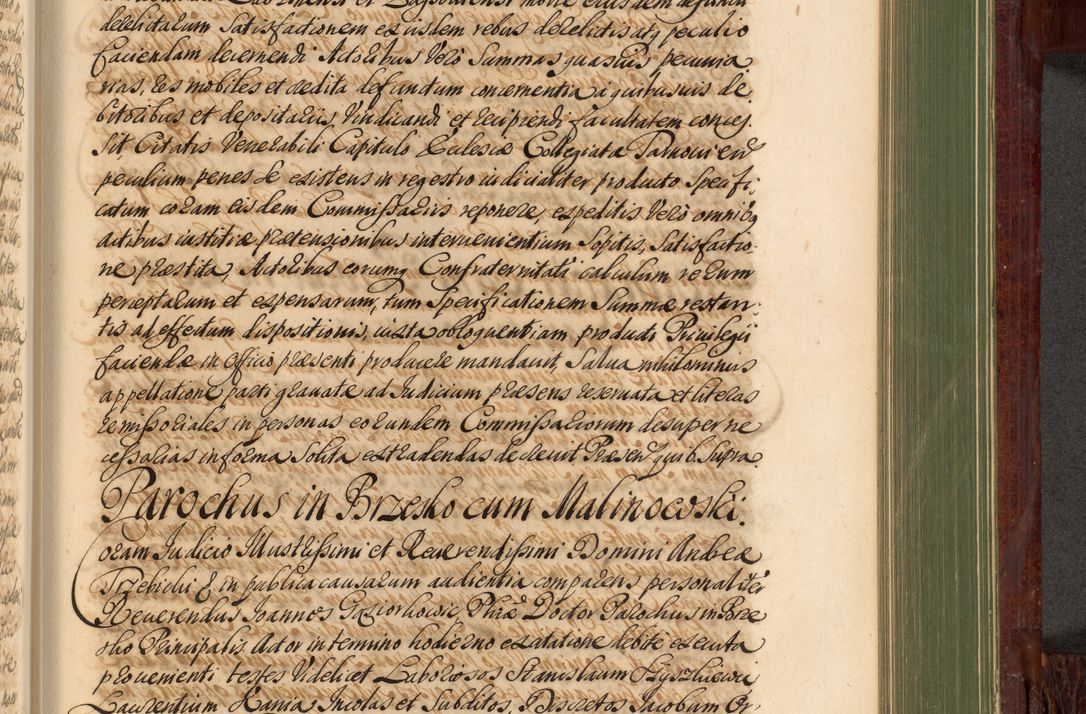 delictarum Satisfactionem ex iisdem rebus derelictis atq peculio
faciendam decernendi Actoribus Vero Summas quasvis, pecunia-
rias, res mobiles et credita defunctum concernentia a quibusvis de
bitoribus et depositariis Vindicandi et recipiendi facultatem conces
sit, Citatis Venerabili Capitulo Ecclesiæ Collegiatæ Tarnovien
peculium penes se existens in regestro iudicialiter producto Specifi-
catum coram eisdem Commissariis reponere, expeditis Vero omnibq
actibus iustitiæ prætensionibus intervenientium Sopitis, Satisfactio-
ne præstita, Actoribus eorumq Confraternitati calculum rerum
perceptarum et expensarum, tum Specificationem Summæ restan-
tis ad effectum dispositionis, iuxta obloquentiam producti Privilegii
faciendæ in officio præsenti producere mandavit, Salva nihilominus
appellatione parti gravatæ ad Iudicium præsens reservata et literas
remissoriales in personas eorundem Commissariorum desuper ne
cessarias in forma Solita extradendas decrevit Præsen quib Supra.
Parochus in Brzesko cum Malinowski.
Coram Iudicio Illustrissimi et Reverendissimi Domini Andreæ
Trzebicki & in publica causarum audientia comparens personaliter
Reverendus Ioannes Gasiorkowic, Phiæ Doctor Parochus in Brze
sko Principalis Actor in termino hodierno ex citatione debite executa
provenienti testes Videlicet Laboriosos Stanislaum
Laurentium Kania Incolas et Subditos, Discretos Jacobum Or-